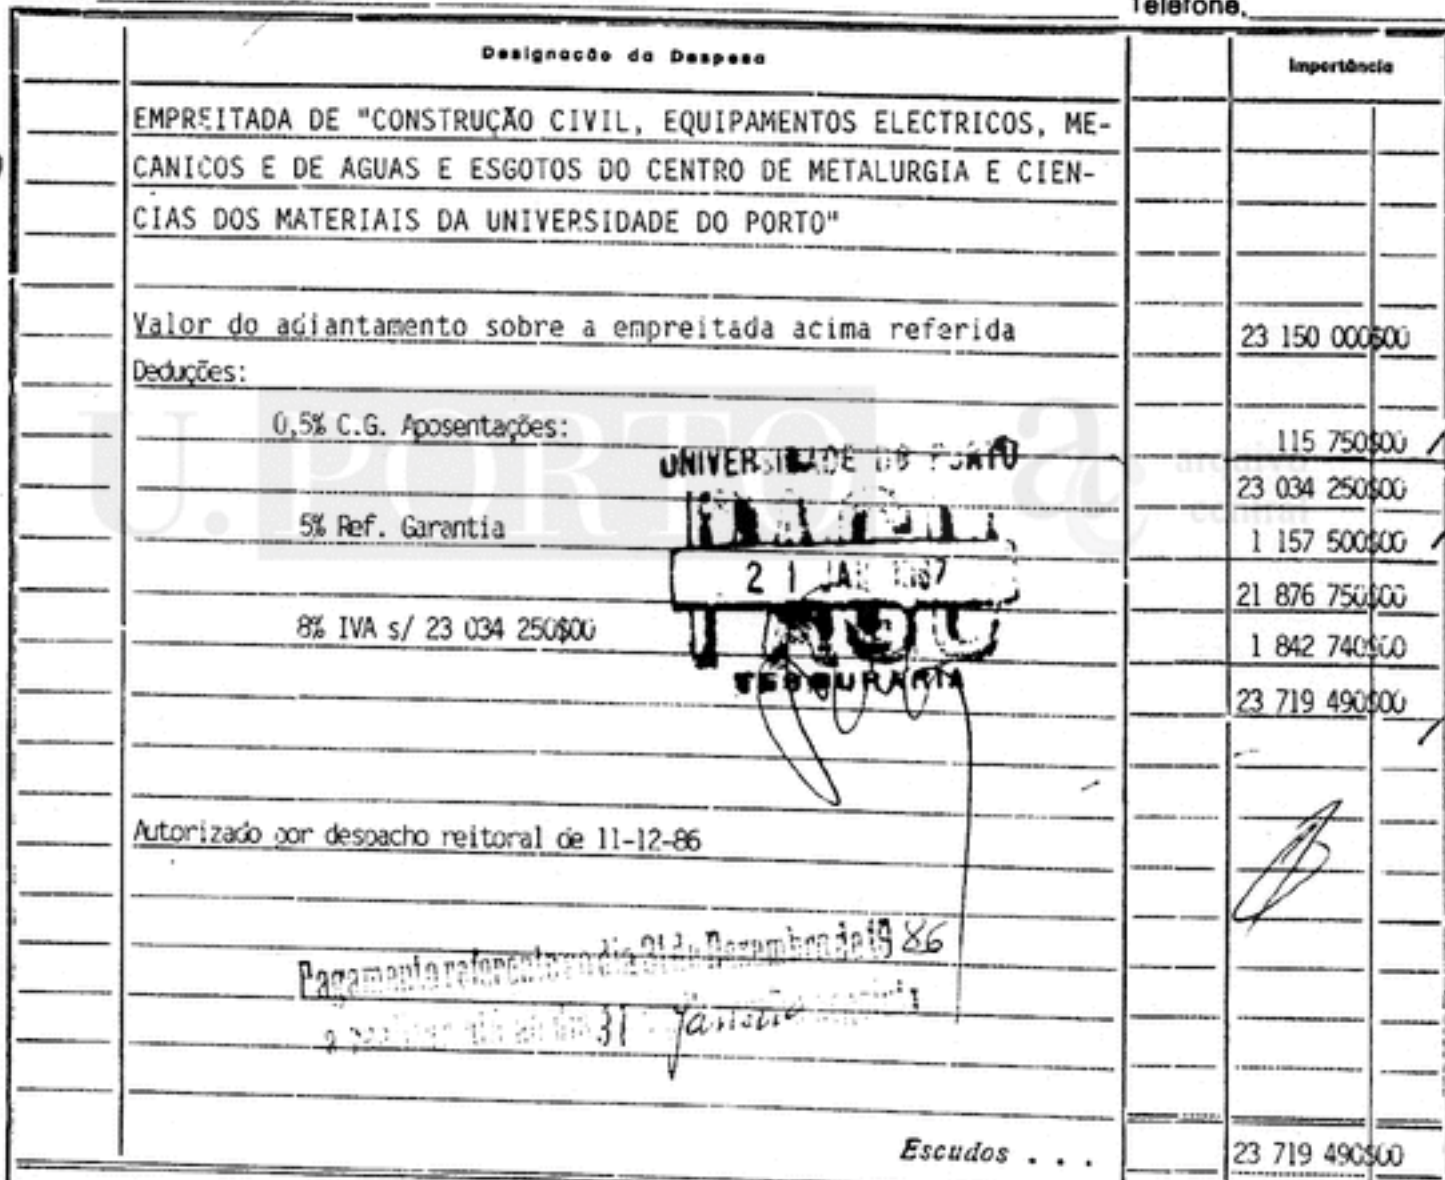 Telefone.
Designação da Despesa
Importância
EMPREITADA DE "CONSTRUÇÃO CIVIL, EQUIPAMENTOS ELECTRICOS, ME-
CANICOS E DE AGUAS E ESGOTOS DO CENTRO DE METALURGIA E CIEN-
CIAS DOS MATERIAIS DA UNIVERSIDADE DO PORTO"
Valor do adiantamento sobre a empreitada acima referida 23 150 000$00
Deduções:
0,5% C.G. Aposentações: 115 750$00
U. PORTO ac arquivo central
UNIVERSIDADE DO PORTO
23 034 250$00
5% Ref. Garantia 1 157 500$00
21 JAN 1987
21 876 750$00
8% IVA s/ 23 034 250$00 1 842 740$00
PAGO
TESOURARIA
23 719 490$00
Autorizado por despacho reitoral de 11-12-86
Pagamento referente ao dia 31 de Dezembro de 1986
31 Janeiro
Escudos . . . 23 719 490$00